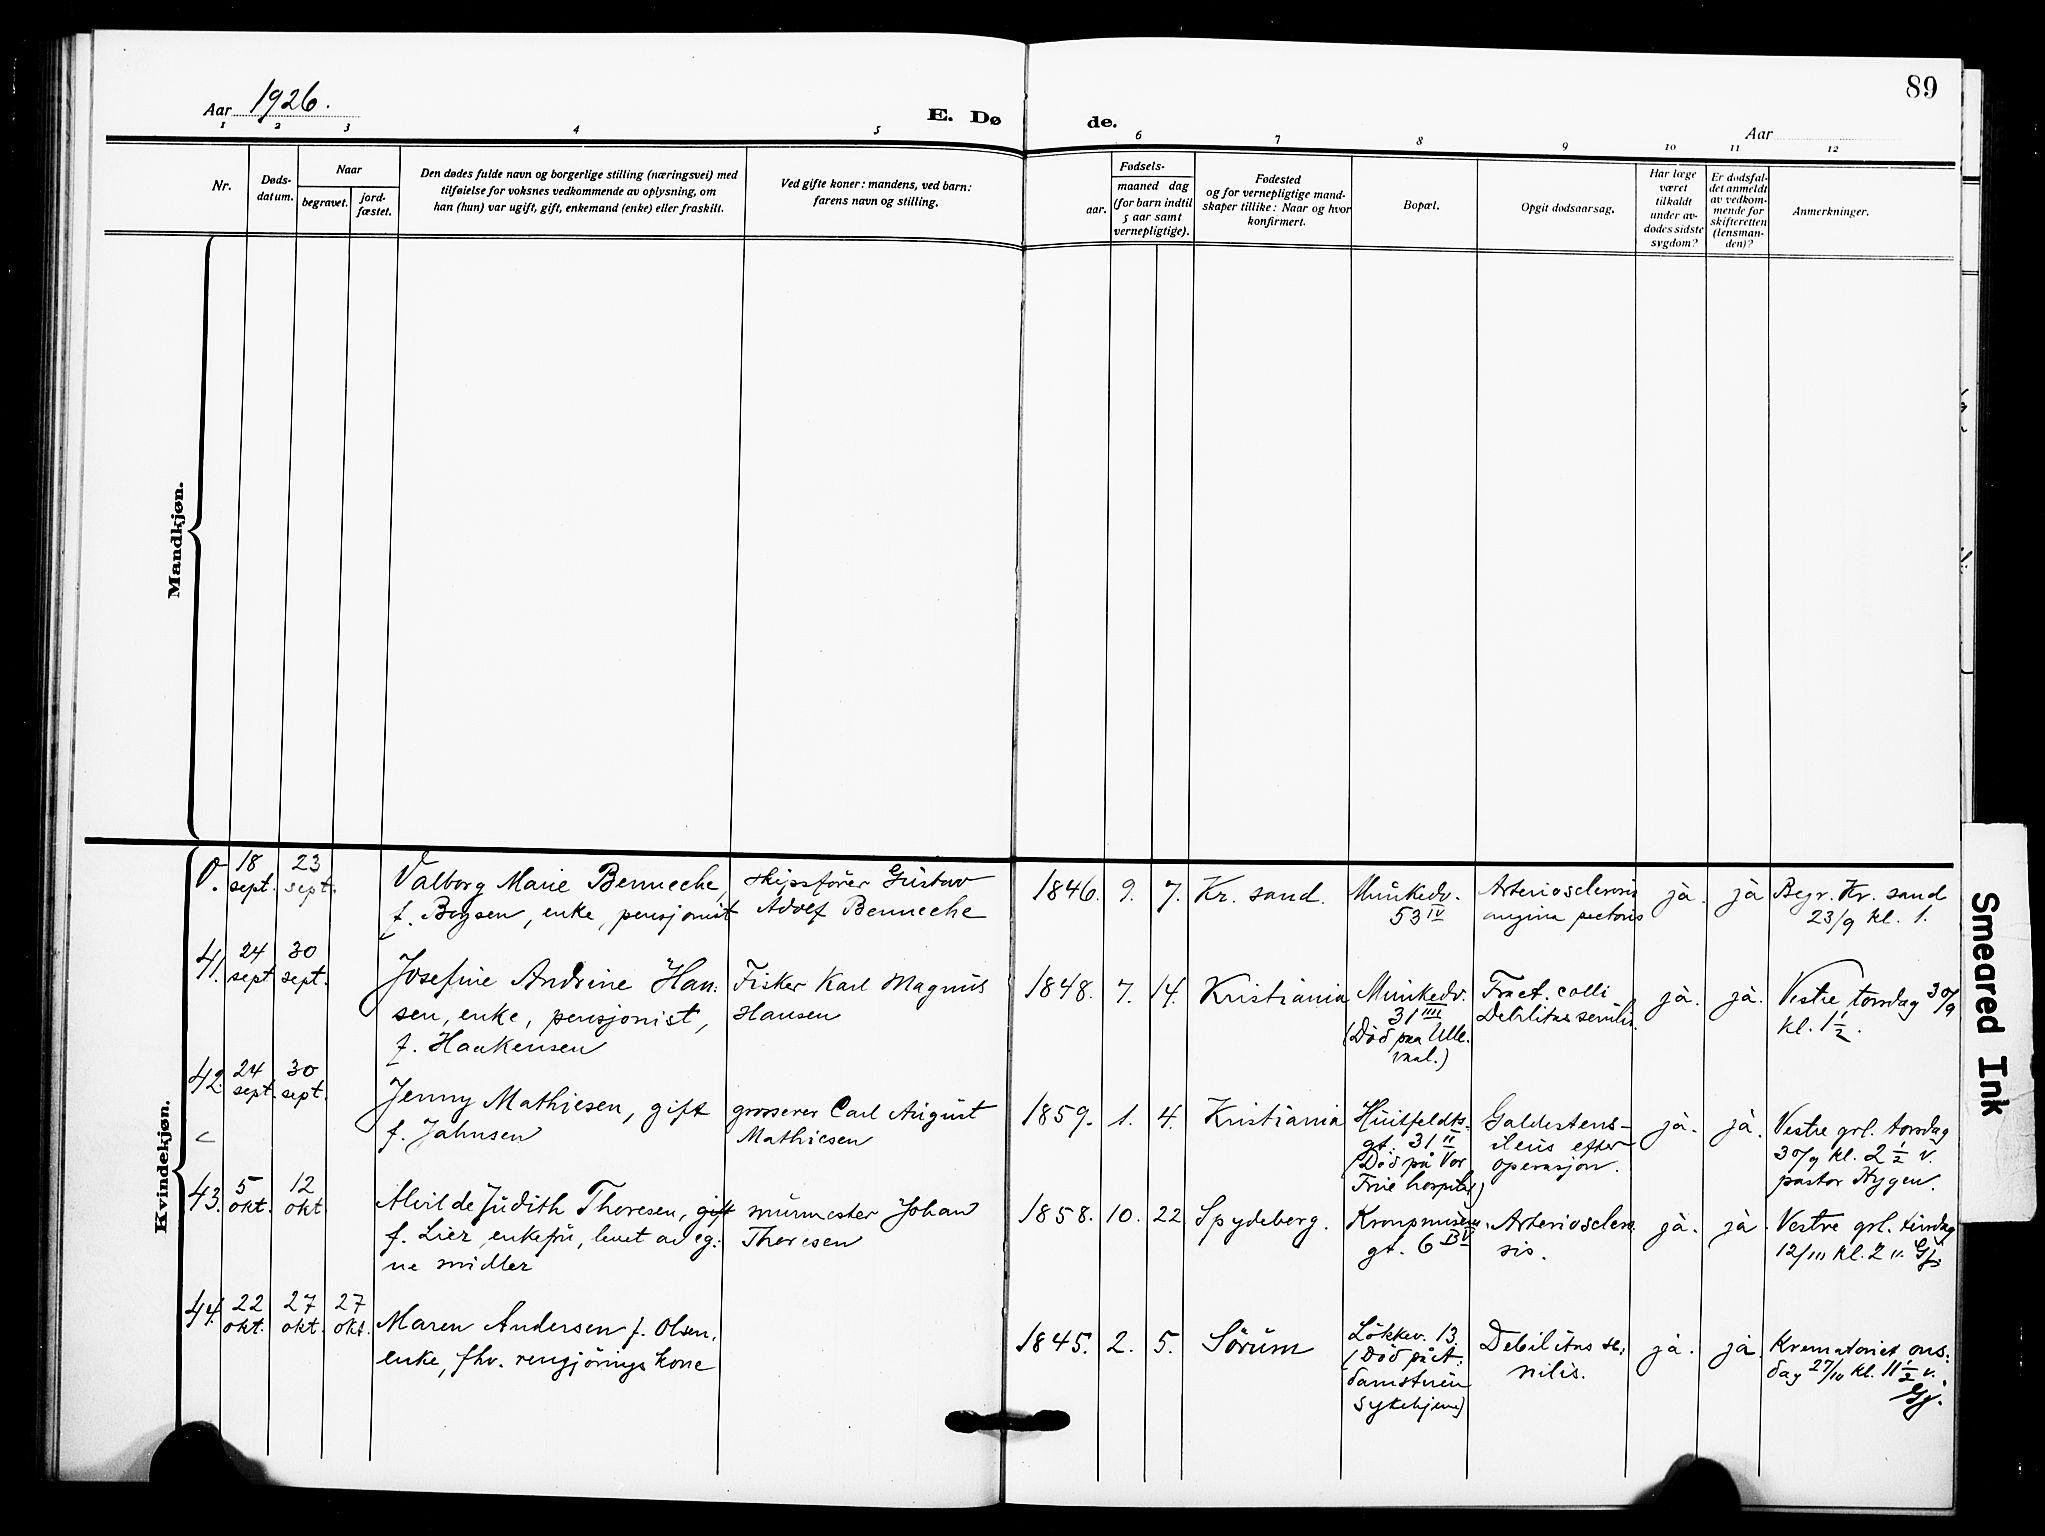 89
Aar 1926.
E. Dø de.
Aar
1 2 3 4 5 6 7 8 9 10 11 12
Nr.
Døds-
datum.
Naar
begravet.
jord-
fæstet.
Den dødes fulde navn og borgerlige stilling (næringsvei) med
tilføielse for voksnes vedkommende av oplysning, om
han (hun) var ugift, gift, enkemand (enke) eller fraskilt.
Ved gifte koner: mandens, ved barn:
farens navn og stilling.
Fødsels-
aar.
maaned dag
(for barn indtil
5 aar samt
vernepligtige).
Fødested
og for vernepligtige mand-
skaper tillike: Naar og hvor
konfirmert.
Bopæl.
Opgit dødsaarsag.
Har læge
været
tilkaldt
under av-
dødes sidste
sygdom?
Er dødsfal-
det anmeldt
av vedkom-
mende for
skifteretten
(lensman-
den)?
Anmerkninger.
Mandkjøn.
Kvindekjøn.
0.
18
sept.
23
sept.
Valborg Marie Benneche,
f. Boysen, enke, pensjonist
skipsfører Gustav
Adolf Benneche
1846. 9. 7. Kr. sand.
Munkedv.
53 IV
Arteriosclerosis
angina pectoris
ja. ja
Begr. Kr. sand
23/9 kl. 1.
41.
24
sept
30
sept.
Josefine Andrine Han-
sen, enke, pensjonist,
f. Haakensen
Fisker Karl Magnus
Hansen
1848. 7. 14. Kristiania
Munkedv.
31 IIII
(Död paa Ulle-
vaal.)
Fract. colli
Debilitas senilis.
ja. ja.
Vestre, torsdag 30/9
kl. 1½.
42.
24
sept.
30
sept.
Jenny Mathiesen, gift
f. Jahnsen
grosserer Carl August
Mathiesen
1859. 1. 4. Kristiania
Huitfeldts-
gt. 31 II
(Död på Vor
Frue hospital)
Galdestens-
ileus efter
operasjon.
ja. ja.
Vestre grl. torsdag
30/9 kl. 2½ v.
pastor Hygen.
43.
5
okt.
12
okt
Alvilde Judith Thoresen, gift
f. Lier, enkefru, levet av eg-
ne midler
murmester Johan
Thoresen
1858. 10. 22 Spydeberg.
gt. 6 B V
Arterioscler
sis.
ja. ja.
Vestre grl. tirsdag
12/10 kl. 2 v. Gj.
44.
22
okt.
27
okt.
27
okt.
Maren Andersen f. Olsen,
enke, fhv. rengjöringskone
1845. 2. 5. Sörum
Lökkev. 13.
(Död på A:
damstuen
sykehjem)
Debilitas se-
nilis.
ja. ja.
Krematoriet ons-
dag 27/10 kl. 11½ v.
Gj.
Smeared Ink